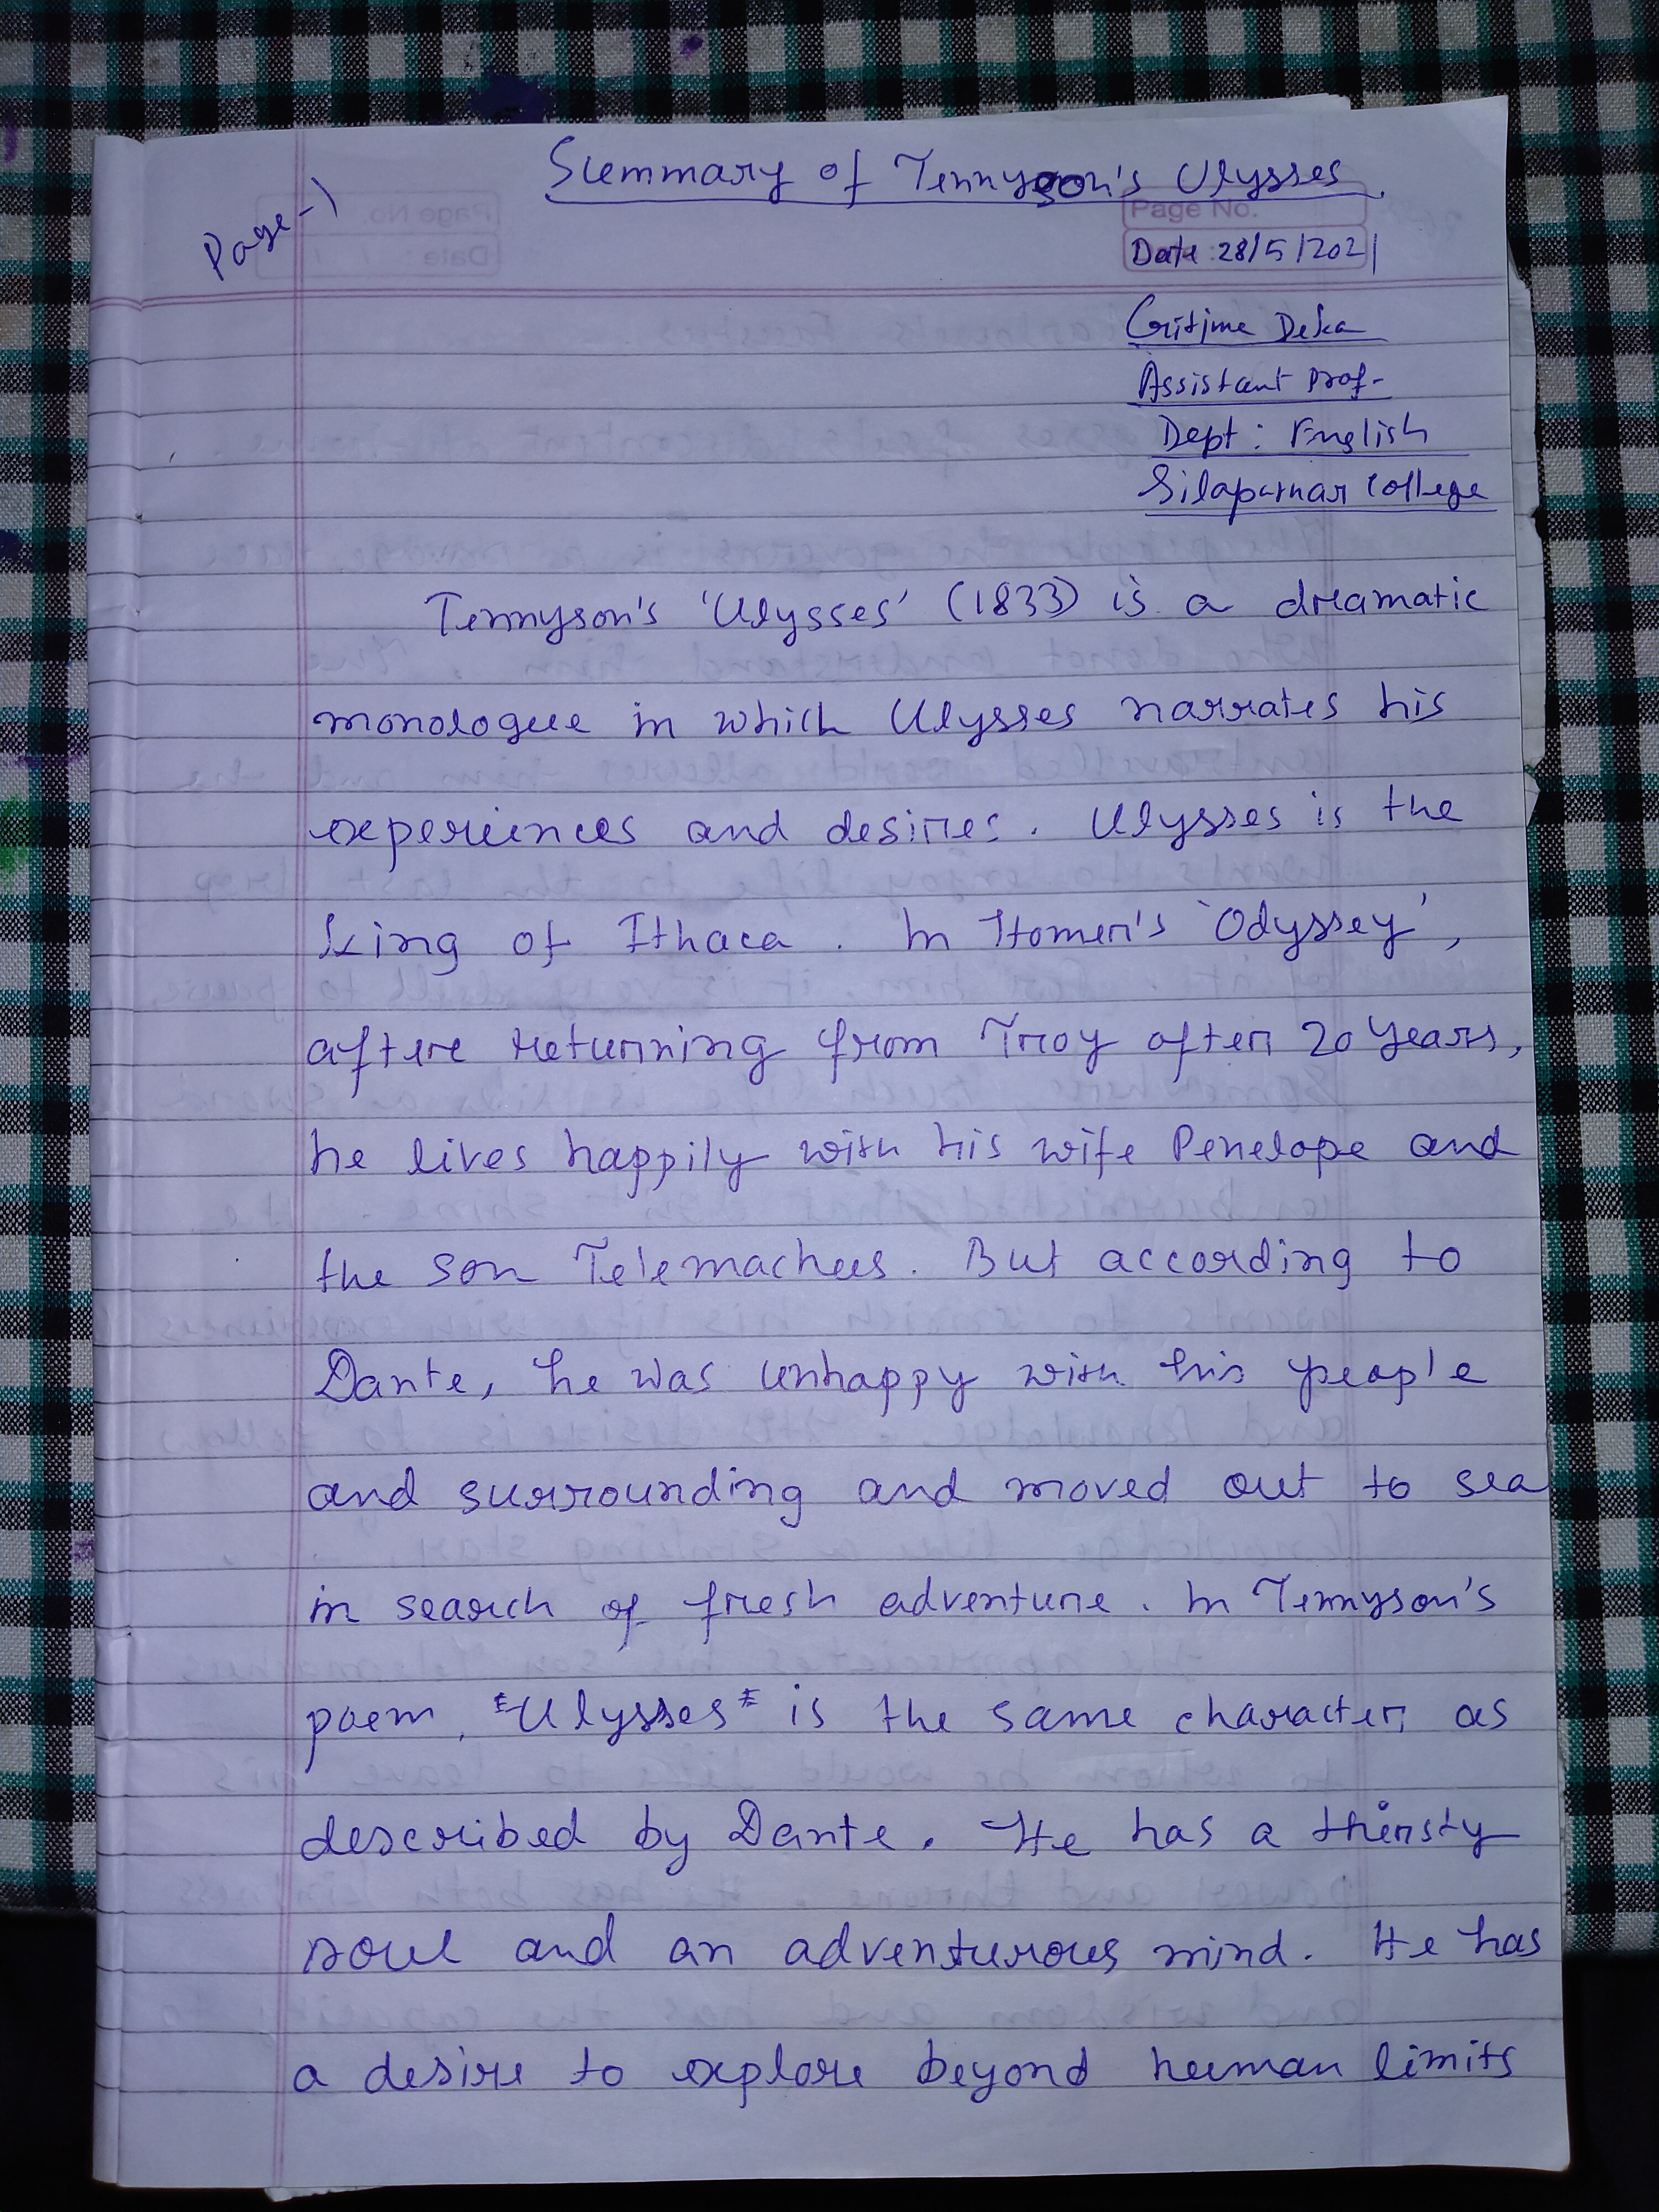 Summary of Tennyson's Ulysses.
Page-1
Page No.
Date: 28/5/2021
Deka
Assistant Prof-
Dept: English
Silapathar College
Tennyson's 'Ulysses' (1833) is a dramatic
monologue in which Ulysses narrates his
experiences and desires. Ulysses is the
king of Ithaca. In Homer's 'Odyssey',
after returning from Troy after 20 years,
he lives happily with his wife Penelope and
the son Telemachus. But according to
Dante, he was unhappy with his people
and surrounding and moved out to sea
in search of fresh adventure. In Tennyson's
poem, "Ulysses" is the same character as
described by Dante. He has a thirsty
soul and an adventurous mind. He has
a desire to explore beyond human limits